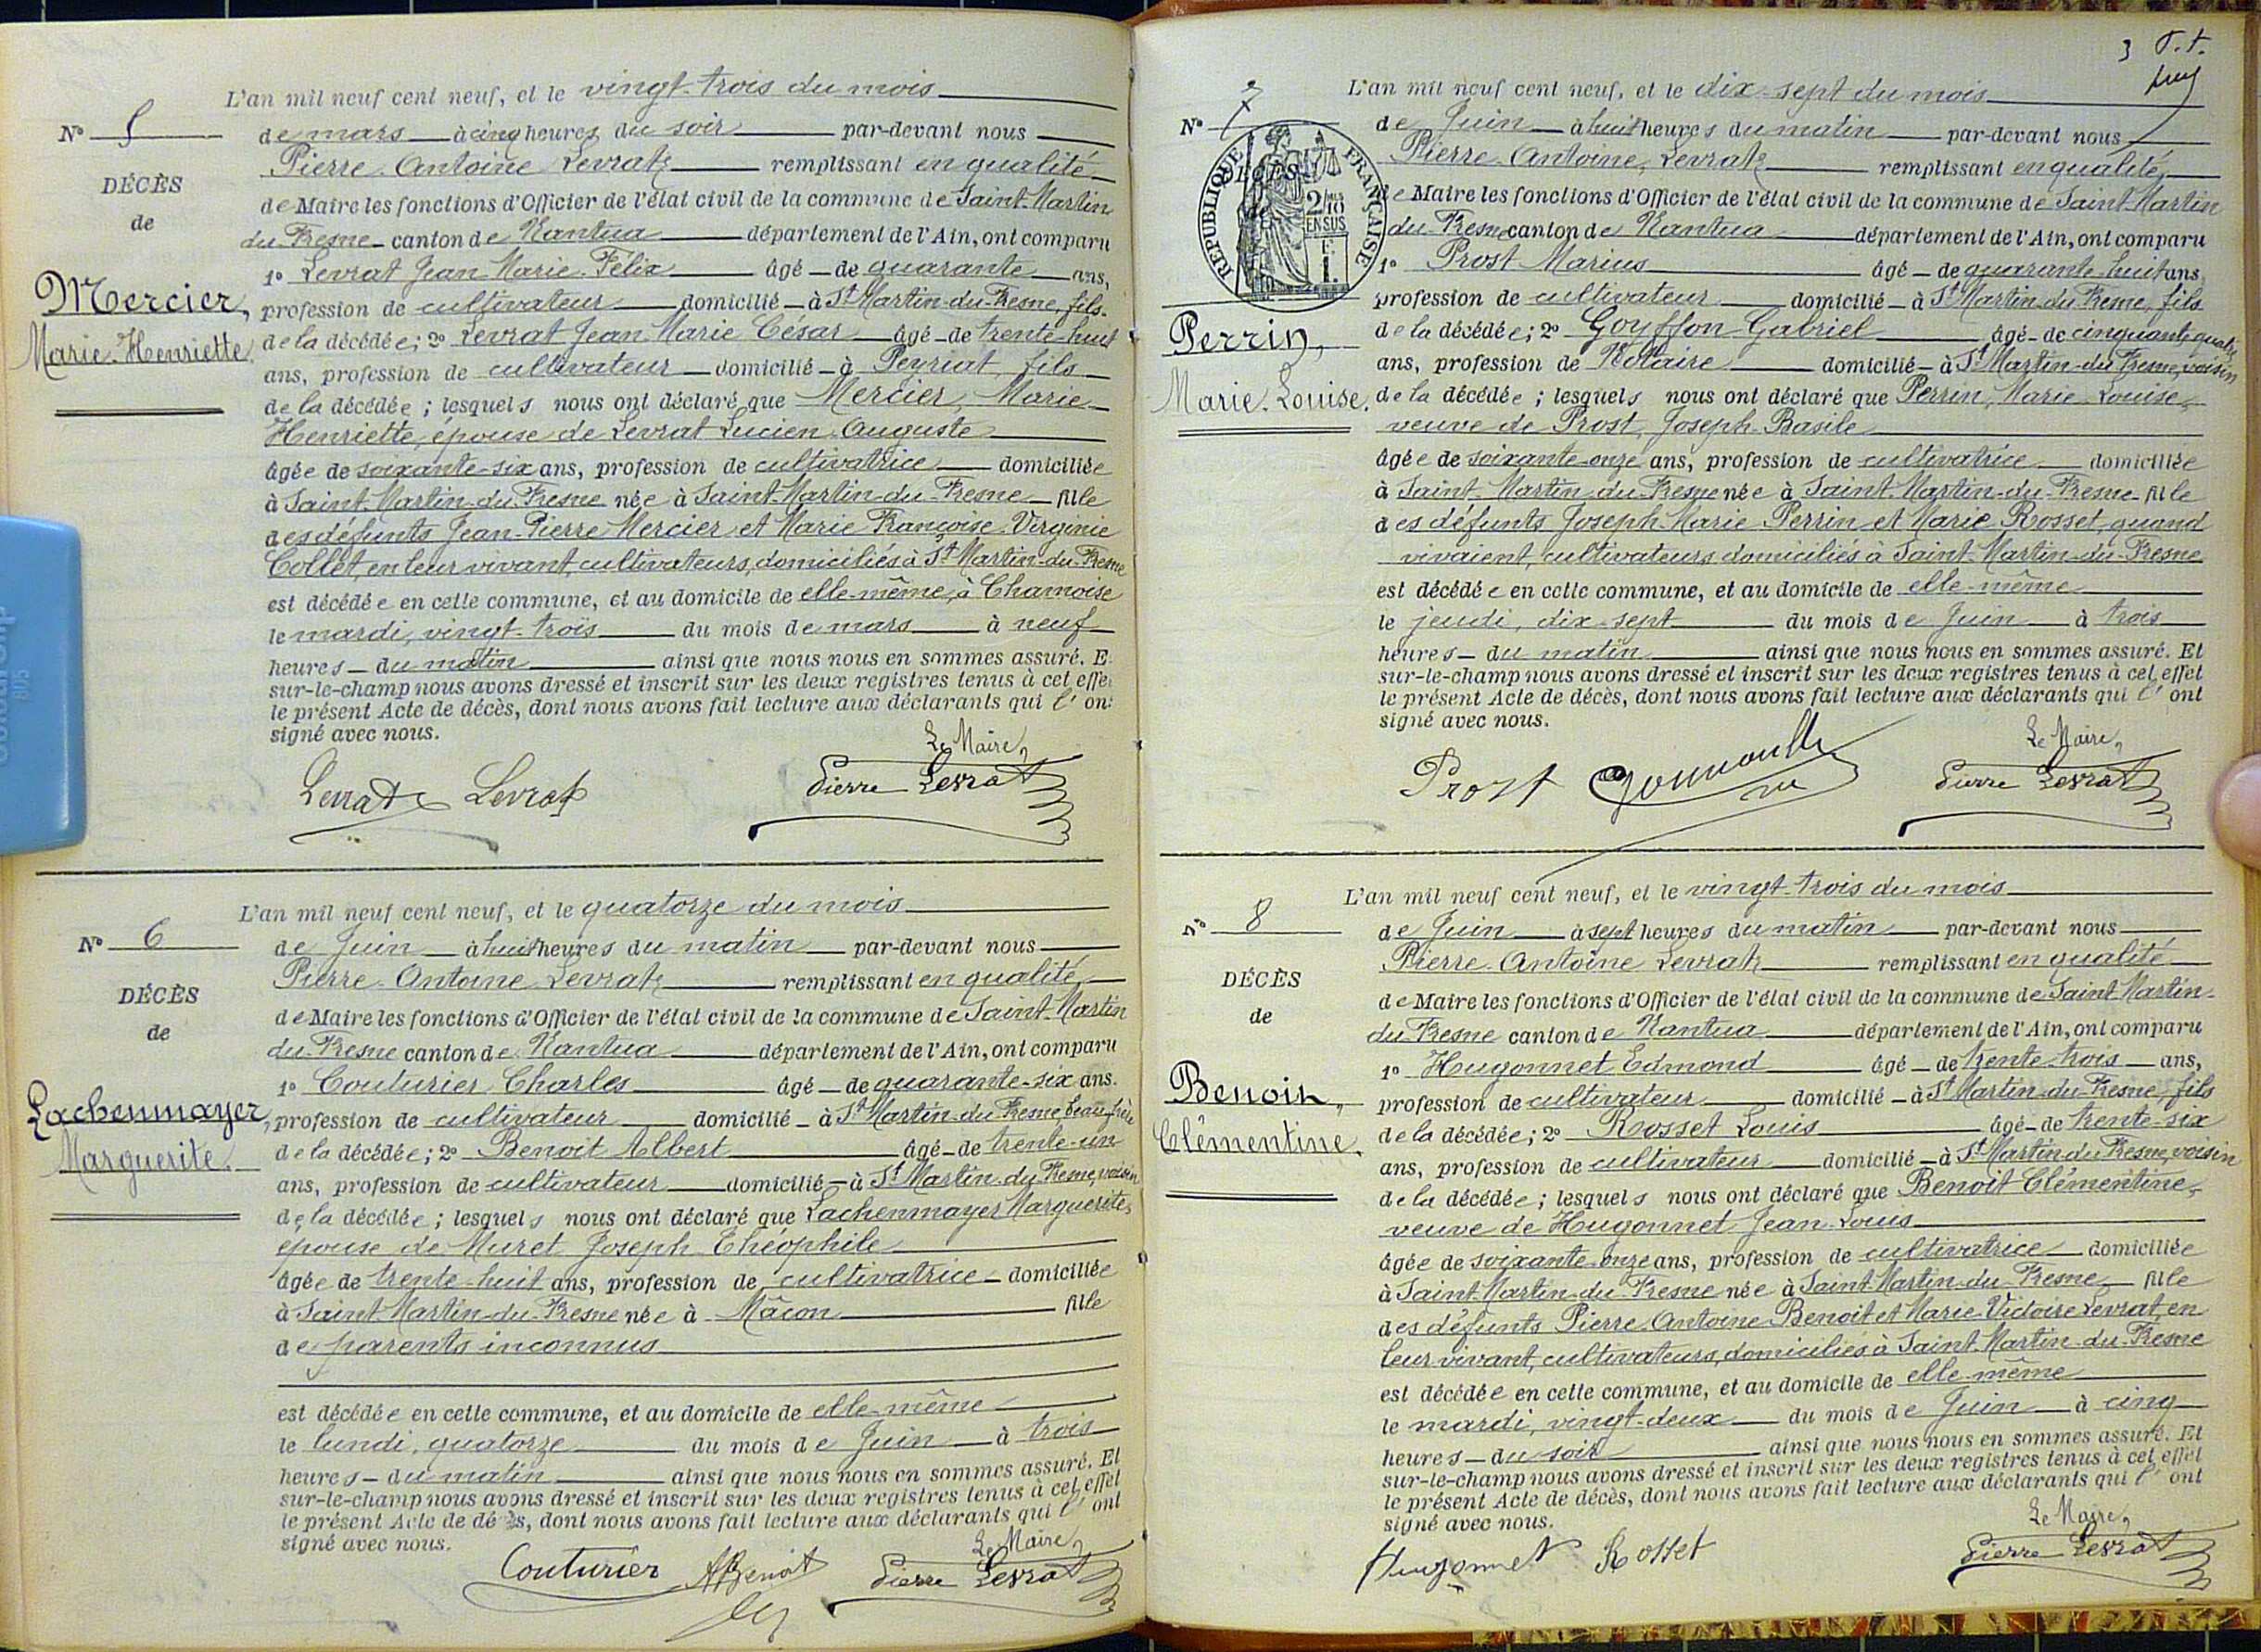 L'an mil neuf cent neuf, et le vingt-trois du mois
N° 5
de mars à cinq heures du soir par-devant nous
DÉCÈS
Pierre-Antoine Levrat remplissant en qualité
de
de Maire les fonctions d'Officier de l'état civil de la commune de Saint-Martin
du-Fresne canton de Nantua département de l'Ain, ont comparu
1° Levrat Jean-Marie-Félix âgé de quarante ans,
Mercier,
profession de cultivateur domicilié à St Martin-du-Fresne, fils
Marie-Henriette
de la décédée; 2° Levrat Jean Marie César âgé de trente-huit
ans, profession de cultivateur domicilié à Peyriat, fils
de la décédée; lesquels nous ont déclaré que Mercier, Marie-
Henriette, épouse de Levrat Lucien-Auguste
âgée de soixante-six ans, profession de cultivatrice domiciliée
à Saint-Martin-du-Fresne née à Saint-Martin-du-Fresne fille
des défunts Jean-Pierre Mercier et Marie Françoise-Virginie
Collet, en leur vivant, cultivateurs, domiciliés à St Martin-du-Fresne
est décédée en cette commune, et au domicile de elle-même, à Chamoise
le mardi, vingt-trois du mois de mars à neuf
heures du matin ainsi que nous nous en sommes assuré. E
sur-le-champ nous avons dressé et inscrit sur les deux registres tenus à cet effe
le présent Acte de décès, dont nous avons fait lecture aux déclarants qui l'on
signé avec nous.
Le Maire,
Levrat Levrat Pierre Levrat
L'an mil neuf cent neuf, et le quatorze du mois
N° 6
de Juin à huit heures du matin par-devant nous
DÉCÈS
Pierre-Antoine Levrat remplissant en qualité
de
de Maire les fonctions d'Officier de l'état civil de la commune de Saint-Martin
du-Fresne canton de Nantua département de l'Ain, ont comparu
1° Couturier Charles âgé de quarante-six ans.
Lachenmayer,
profession de cultivateur domicilié à St Martin-du-Fresne beau-frère
Marguerite.
de la décédée; 2° Benoit Albert âgé de trente-un
ans, profession de cultivateur domicilié à St Martin-du-Fresne, voisin
de la décédée; lesquels nous ont déclaré que Lachenmayer Marguerite,
épouse de Muret Joseph Théophile
âgée de trente-huit ans, profession de cultivatrice domiciliée
à Saint-Martin-du-Fresne née à Mâcon fille
de parents inconnus
est décédée en cette commune, et au domicile de elle-même
le lundi, quatorze du mois de Juin à trois
heures du matin ainsi que nous nous en sommes assuré. Et
sur-le-champ nous avons dressé et inscrit sur les deux registres tenus à cet effet
le présent Acte de décès, dont nous avons fait lecture aux déclarants qui l'ont
signé avec nous.
Le Maire,
Couturier ABenoit Pierre Levrat
3
L'an mil neuf cent neuf, et le dix-sept du mois
N° 7
de Juin à huit heures du matin par-devant nous
RÉPUBLIQUE FRANÇAISE
Pierre-Antoine, Levrat remplissant en qualité,
de Maire les fonctions d'Officier de l'état civil de la commune de Saint-Martin
du-Fresne canton de Nantua département de l'Ain, ont comparu
1° Prost Marius âgé de quarante-huit ans
profession de cultivateur domicilié à St Martin-du-Fresne, fils
Perrin,
de la décédée; 2° Gouffon Gabriel âgé de cinquante-quatre
ans, profession de Notaire domicilié à St Martin-du-Fresne, voisin
Marie-Louise.
de la décédée; lesquels nous ont déclaré que Perrin, Marie-Louise,
veuve de Prost, Joseph-Basile
âgée de soixante-onze ans, profession de cultivatrice domiciliée
à Saint-Martin-du-Fresne née à Saint-Martin-du-Fresne fille
des défunts Joseph-Marie Perrin et Marie Rosset, quand
vivaient, cultivateurs, domiciliés à Saint-Martin-du-Fresne
est décédée en cette commune, et au domicile de elle-même
le jeudi, dix-sept du mois de Juin à trois
heures du matin ainsi que nous nous en sommes assuré. Et
sur-le-champ nous avons dressé et inscrit sur les deux registres tenus à cet effet
le présent Acte de décès, dont nous avons fait lecture aux déclarants qui l'ont
signé avec nous.
Le Maire,
Prost Pierre Levrat
L'an mil neuf cent neuf, et le vingt-trois du mois
N° 8
de Juin à sept heures du matin par-devant nous
Pierre-Antoine Levrat remplissant en qualité
DÉCÈS
de Maire les fonctions d'Officier de l'état civil de la commune de Saint-Martin-
de
du-Fresne canton de Nantua département de l'Ain, ont comparu
1° Hugonnet Edmond âgé de trente-trois ans,
Benoit,
profession de cultivateur domicilié à St Martin-du-Fresne, fils
Clémentine.
de la décédée; 2° Rosset Louis âgé de trente-six
ans, profession de cultivateur domicilié à St Martin-du-Fresne, voisin
de la décédée; lesquels nous ont déclaré que Benoit Clémentine,
veuve de Hugonnet Jean-Louis
âgée de soixante-onze ans, profession de cultivatrice domiciliée
à Saint-Martin-du-Fresne née à Saint-Martin-du-Fresne fille
des défunts Pierre-Antoine Benoit et Marie-Victoire Levrat, en
leur vivant, cultivateurs, domiciliés à Saint-Martin-du-Fresne
est décédée en cette commune, et au domicile de elle-même
le mardi, vingt-deux du mois de Juin à cinq
heures du soir ainsi que nous nous en sommes assuré. Et
sur-le-champ nous avons dressé et inscrit sur les deux registres tenus à cet effet
le présent Acte de décès, dont nous avons fait lecture aux déclarants qui l'ont
signé avec nous.
Le Maire,
Hugonnet Rosset Pierre Levrat